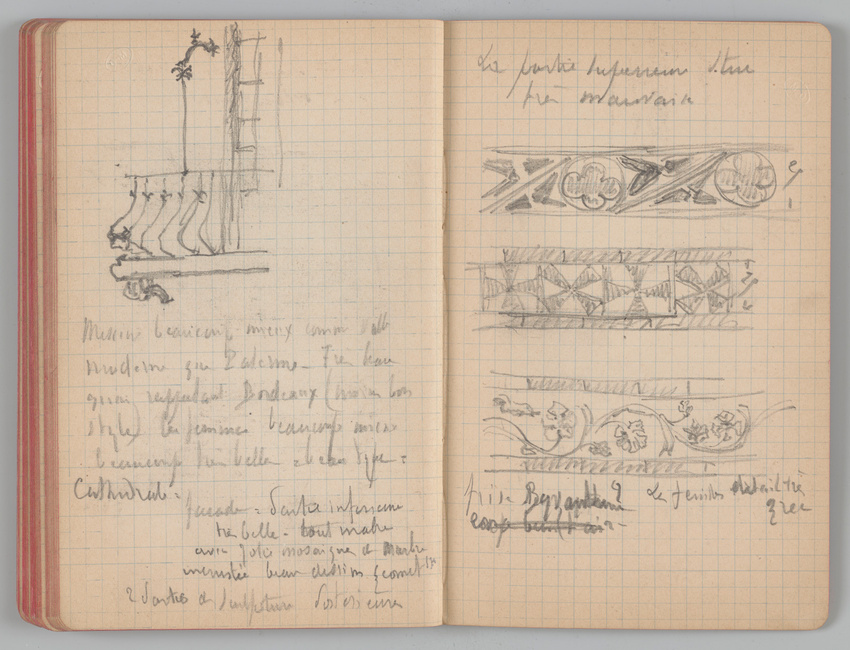 Messine beaucoup mieux comme ville
moderne que Palerme - Très beau
quai rappelant Bordeaux (moins bon
style) les femmes beaucoup mieux
beaucoup très belles = beau type =
Cathédrale =
façade = Partie inférieure
très belle - tout marbre
avec jolie mosaïque de marbre
incrustée beau dessins géomet
2 Parties de Sculpture Postérieures
La partie supérieure
très mauvaise
frise Byzantine ? La fenêtre